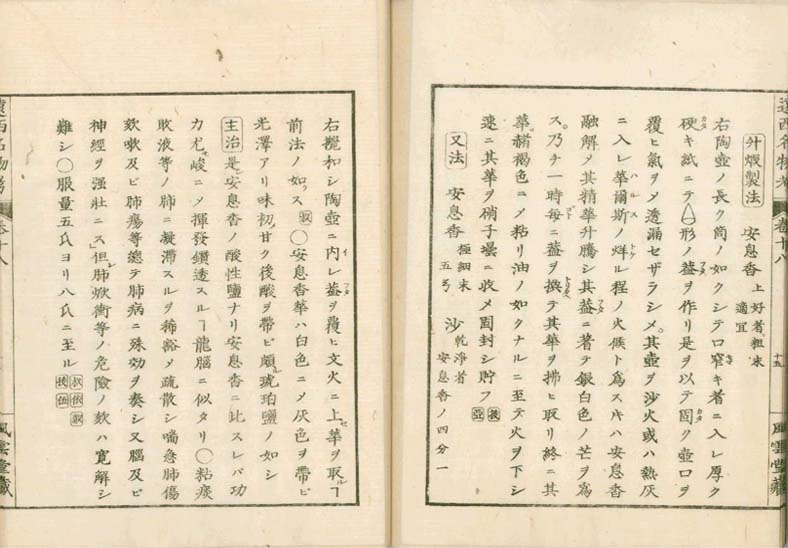 遠西名物考 卷十八 十五 風雲堂藏
升煆製法 安息香 上好者粗末 適宜
右陶壺ノ長ク筒ノ如クシテ口窄キ者ニ入レ厚ク
硬キ紙ニテ△形ノ葢ヲ作リ是ヲ以テ固ク壺口ヲ
覆ヒ氣ヲメ透漏セザラシメ其壺ヲ沙火或ハ熱灰
ニ入レ華爾斯ノ烊ル程ノ火候ト爲スキハ安息香
融解メ其精華升騰シ其葢ニ著テ銀白色ノ芒ヲ爲
ス乃チ一時每ニ葢ヲ換テ其華ヲ拂ヒ取リ終ニ其
華赭褐色ニメ粘リ油ノ如クナルニ至テ火ヲ下シ
速ニ其華ヲ硝子壜ニ收メ固封シ貯フ
又法 安息香 極細末 五 沙 乾淨者 安息香ノ四分一
右攪和シ陶壺ニ内レ葢ヲ覆ヒ文火ニ上セ華ヲ取ルヿ
前法ノ如クス 〇安息香華ハ白色ニメ灰色ヲ帶ビ
光澤アリ味初メ甘ク後酸ヲ帶ビ頗ル琥珀鹽ノ如シ
主治 是レ安息香ノ酸性鹽ナリ安息香ニ比スレバ功
力尤峻ニメ揮發鑽透スルヿ龍腦ニ似タリ〇粘痰
敗液等ノ肺ニ凝滯スルヲ稀豁メ疏散シ喘急肺傷
欬嗽及ビ肺瘍等總テ肺病ニ殊効ヲ奏シ又腦及ビ
神經ヲ强壯ニス但肺焮衝等ノ危險ノ欬ハ寛解シ
難シ〇服量五氏ヨリ八氏ニ至ル
遠西名物考 卷十八 風雲堂藏